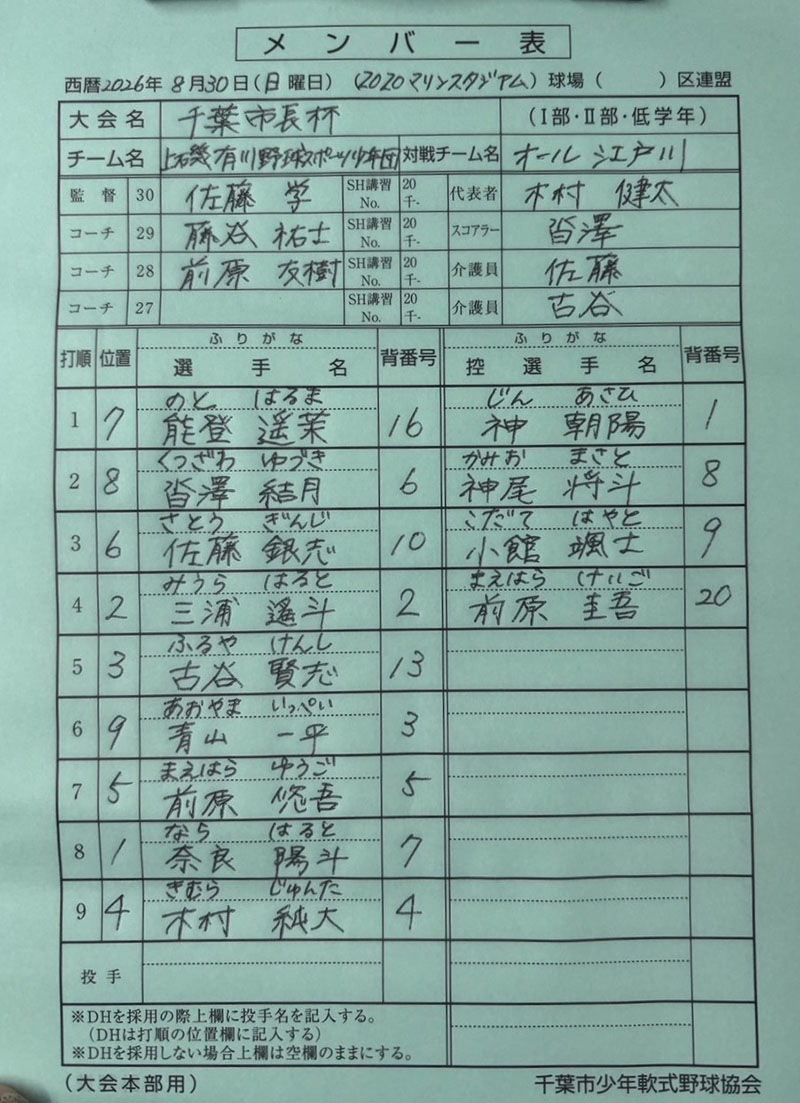 メンバー表
西暦2026年 8月30日(日曜日) (ZOZOマリンスタジアム)球場( )区連盟
大会名 千葉市長杯 (Ⅰ部・Ⅱ部・低学年)
チーム名 上石磯有川野球スポーツ少年団 対戦チーム名 オール江戸川
監督 30 佐藤 学 SH講習No. 20千- 代表者 木村 健太
コーチ 29 藤谷 祐士 SH講習No. 20千- スコアラー 沓澤
コーチ 28 前原 友樹 SH講習No. 20千- 介護員 佐藤
コーチ 27 SH講習No. 20千- 介護員 古谷
打順 位置 ふりがな 選手名 背番号 ふりがな 控選手名 背番号
のと はるま じん あさひ
1 7 能登 遥茉 16 神 朝陽 1
くつざわ ゆづき かみお まさと
2 8 沓澤 結月 6 神尾 将斗 8
さとう ぎんじ こだて はやと
3 6 佐藤 銀志 10 小館 颯士 9
みうら はると まえはら けいご
4 2 三浦 遙斗 2 前原 圭吾 20
ふるや けんし
5 3 古谷 賢志 13
あおやま いっぺい
6 9 青山 一平 3
まえはら ゆうご
7 5 前原 悠吾 5
なら はると
8 1 奈良 陽斗 7
きむら じゅんた
9 4 木村 純大 4
投手
※DHを採用の際上欄に投手名を記入する。
(DHは打順の位置欄に記入する)
※DHを採用しない場合上欄は空欄のままにする。
(大会本部用) 千葉市少年軟式野球協会